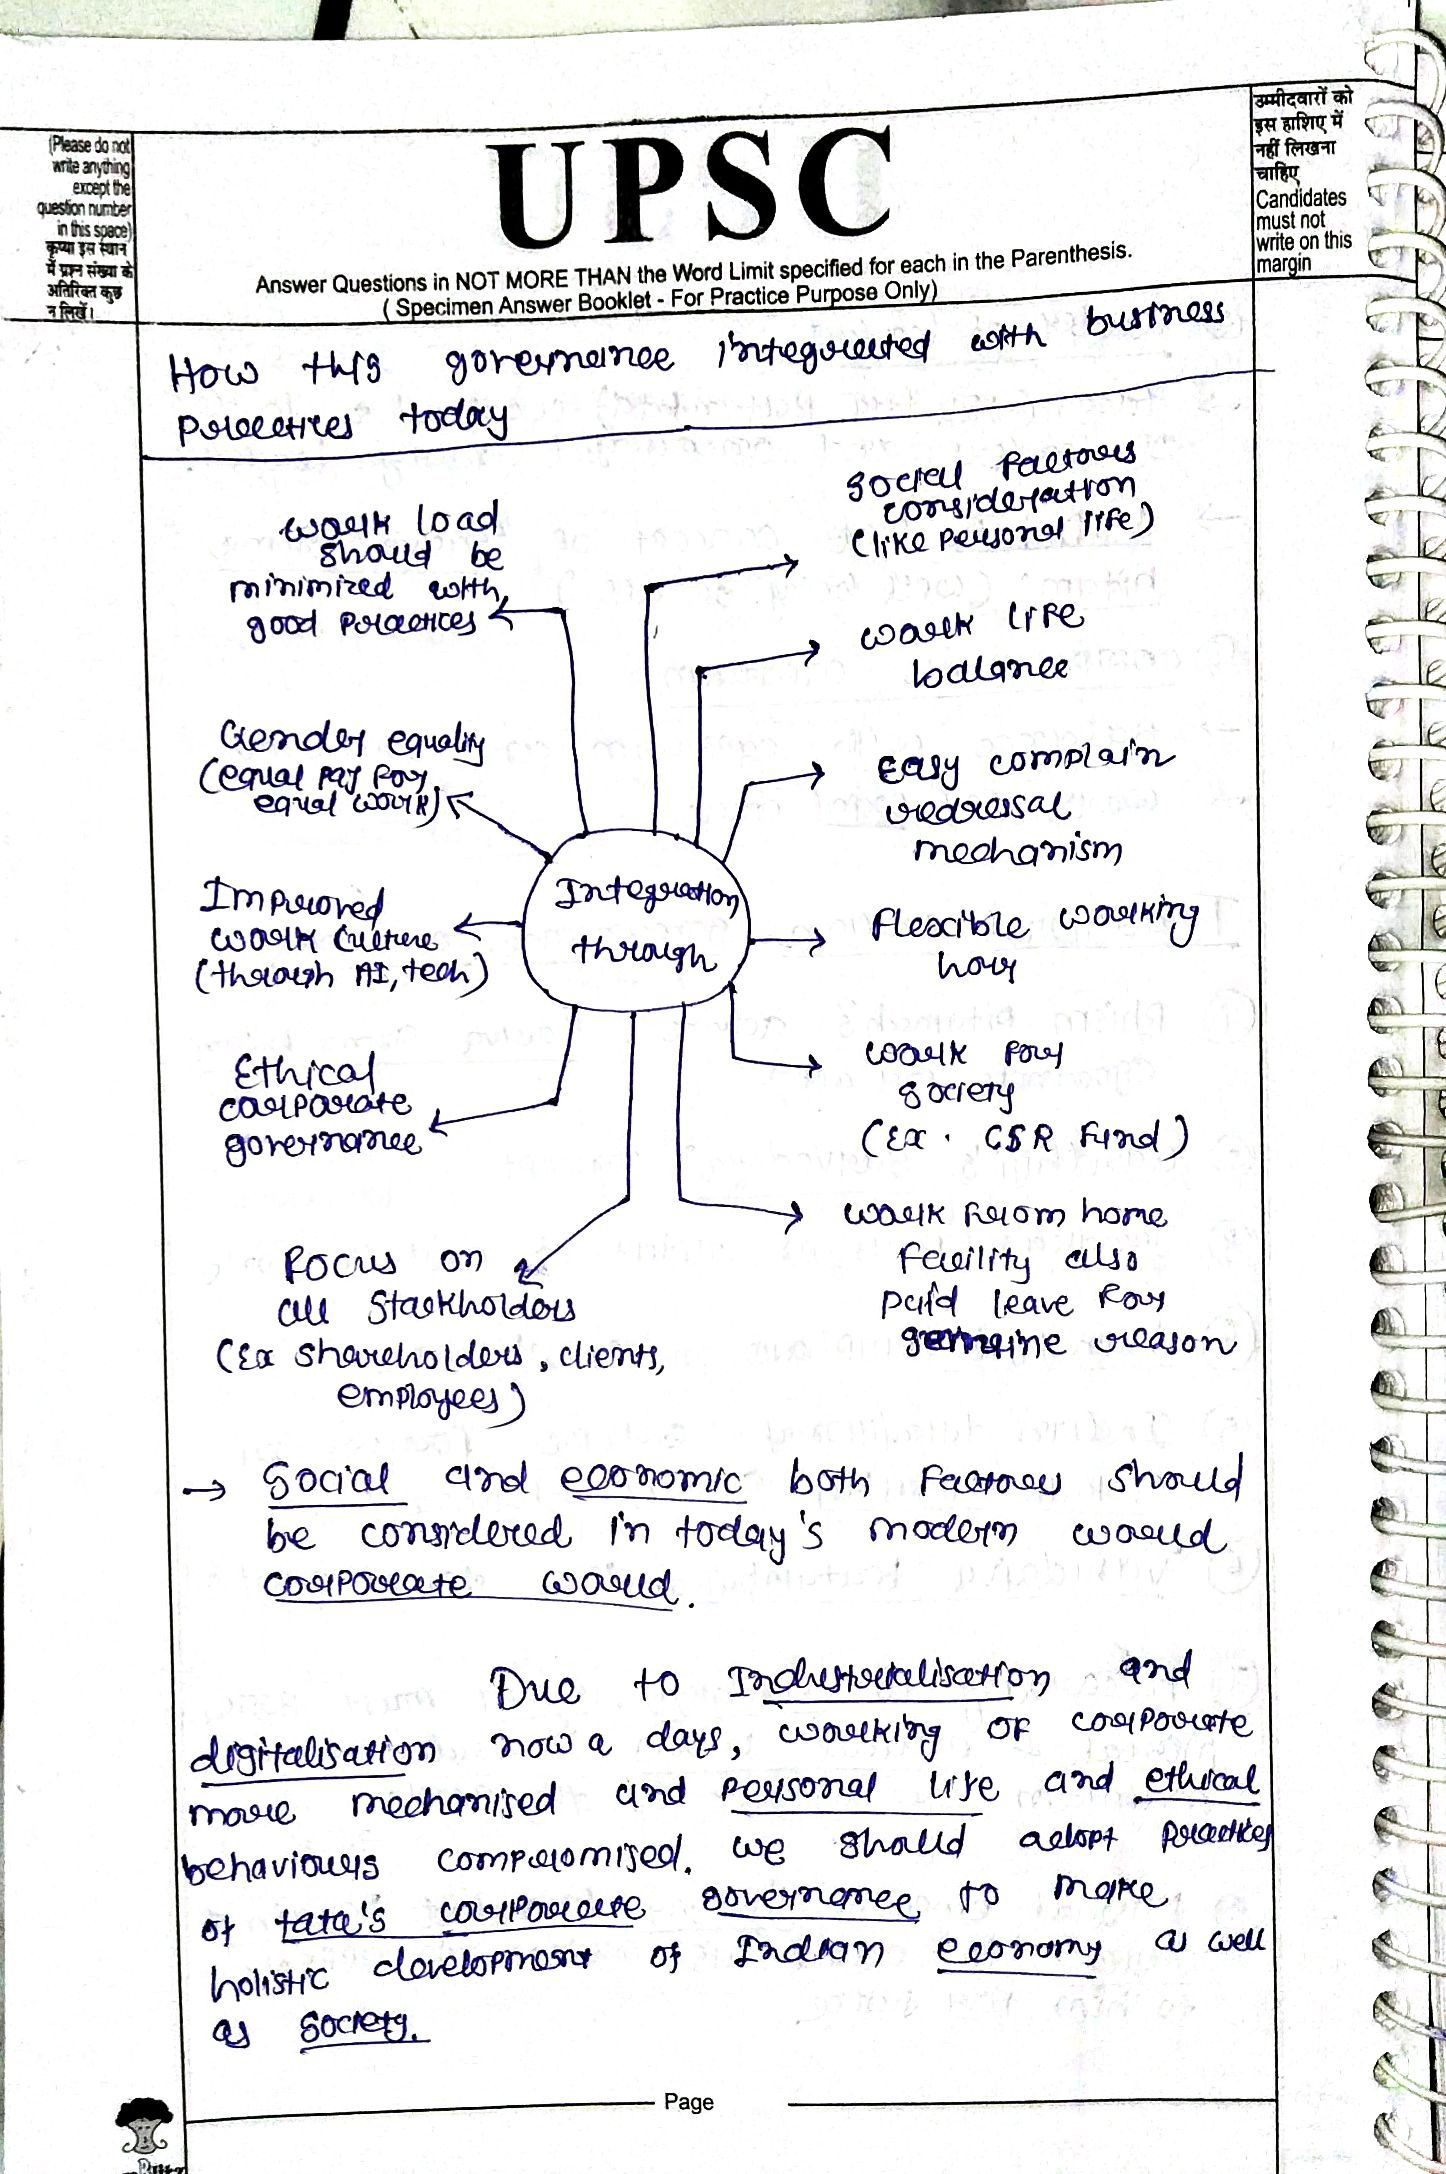 (Please do not
write anything
except the
question number
in this space)
कृप्या इस स्थान
में प्रश्न संख्या के
अतिरिक्त कुछ
न लिखें।
UPSC
Answer Questions in NOT MORE THAN the Word Limit specified for each in the Parenthesis.
( Specimen Answer Booklet - For Practice Purpose Only)
उम्मीदवारों को
इस हाशिए में
नहीं लिखना
चाहिए
Candidates
must not
write on this
margin
How this governance integrated with business
Practices today
work load
should be
minimized with
good practices
Gender equality
(equal pay for
equal work)
Improved
work culture
(through AI, tech)
Ethical
corporate
governance
Focus on
all Stakholders
(Ex shareholders, clients,
employees)
Integration
through
social factors
consideration
(like personal life)
work life
balance
Easy complain
redressal
mechanism
flexible working
hour
work for
society
(Ex. CSR Fund)
work from home
facility also
paid leave for
genuine reason
→ Social and economic both factors should
be considered in today's modern world
corporate world.
Due to Industrialisation and
digitalisation now a days, working of corporate
more mechanised and personal life and ethical
behaviours compromised. we should adopt practices
of tata's corporate governance to make
holistic development of Indian economy as well
as society.
Page